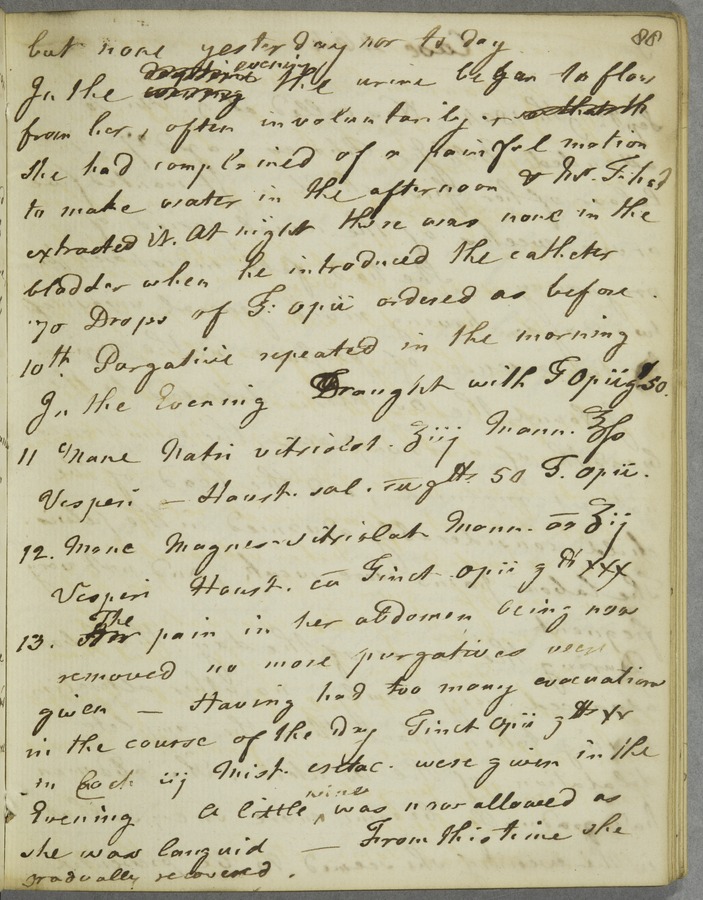 88
but none yesterday nor to day
In the evening the urine began to flow
from her, often involuntarily,
she had complained of a painful motion
to make water in the afternoon & Mr. F. had
extracted it. At night there was none in the
bladder when he introduced the catheter
70 Drops of T. opii ordered as before.
10th Purgative repeated in the morning
In the Evening Draught with T Opii gtt 50.
11 Mane Natri vitriolat. ʒiij Mann. ʒſs
Vesperi — Haust. sal. cu gtts 50 T. opii.
12. Mane Magnes. vitriolat Mann. aa ʒij
Vesperi Haust. cu Tinct. opii gtt xxx
13. The pain in her abdomen being now
removed no more purgatives were
given — Having had too many evacuations
in the course of the Day Tinct Opii gtts xv
in Coch iij Mist. cretac. were given in the
Evening A little wine was now allowed as
she was languid — From this time she
gradually recovered.